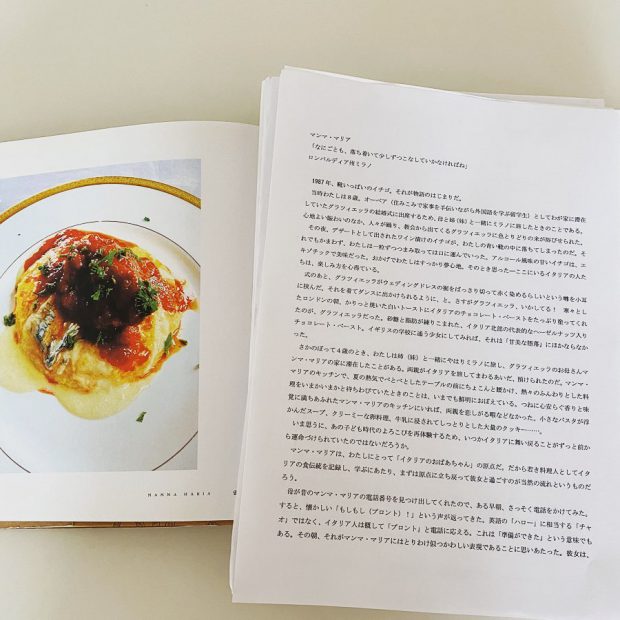 マンマ・マリア
「なにごとも、落ち着いて少しずつこなしていかなければね」
ロンバルディア州ミラノ
1987年、靴いっぱいのイチゴ。それが物語のはじまりだ。
当時わたしは8歳。オーペア（住みこみで家事を手伝いながら外国語を学ぶ留学生）としてわが家に滞在
していたグラフィエッラの結婚式に出席するため、母と姉（妹）と一緒にミラノに旅したときのことである。
心地よい賑わいのなか、人々が踊り、教会から出てくるグラフィエッラに色とりどりの米が浴びせられた。
その夜、デザートとして出されたワイン漬けのイチゴが、わたしの青い靴の中に落ちてしまったのだ。そ
れでもかまわず、わたしは一粒ずつつまみ取っては口に運んでいった。アルコール風味の甘いイチゴは、エ
キゾチックで美味だった。おかげでわたしはすっかり夢心地。そのとき思った―ここにいるイタリアの人た
ちは、楽しみ方を心得ている。
式のあと、グラフィエッラがウェディングドレスの裾をばっさり切って赤く染めるらしいという噂を小耳
に挟んだ。それを着てダンスに出かけられるように、と。さすがグラフィエッラ、いかしてる！　寒々とし
たロンドンの朝、かりっと焼いた白いトーストにイタリアのチョコレート・ペーストをたっぷり塗ってくれ
たのが、グラフィエッラだった。砂糖と脂肪が練りこまれた、イタリア北部の代表的なヘーゼルナッツ入り
チョコレート・ペースト。イギリスの学校に通う少女にしてみれば、それは「甘美な堕落」にほかならなか
った。
さかのぼって4歳のとき、わたしは姉（妹）と一緒にやはりミラノに旅し、グラフィエッラのお母さんマ
ンマ・マリアの家に滞在したことがある。両親がイタリアを旅してまわるあいだ、預けられたのだ。マンマ・
マリアのキッチンで、夏の熱気でべとべとしたテーブルの前にちょこんと腰かけ、熱々のふんわりとした料
理をいまかいまかと待ちわびていたときのことは、いまでも鮮明におぼえている。つねに心安らぐ香りと味
覚に満ちあふれたマンマ・マリアのキッチンにいれば、両親を恋しがる暇などなかった。小さなパスタが浮
かんだスープ、クリーミーな卵料理、牛乳に浸されてしっとりとした大量のクッキー……。
いま思うに、あの子ども時代のよろこびを再体験するため、いつかイタリアに舞い戻ることがずっと前か
ら運命づけられていたのではないだろうか。
マンマ・マリアは、わたしにとって「イタリアのおばあちゃん」の原点だ。だから若き料理人としてイタ
リアの食伝統を記録し、学ぶにあたり、まずは原点に立ち戻って彼女と過ごすのが当然の流れというものだ
ろう。
母が昔のマンマ・マリアの電話番号を見つけ出してくれたので、ある早朝、さっそく電話をかけてみた。
すると、懐かしい「もしもし（プロント）！」という声が返ってきた。英語の「ハロー」に相当する「チャ
オ」ではなく、イタリア人は概して「プロント」と電話に応える。これは「準備ができた」という意味でも
ある。その朝、それがマンマ・マリアにはとりわけ似つかわしい表現であることに思いあたった。彼女は、
NANNA MARIA